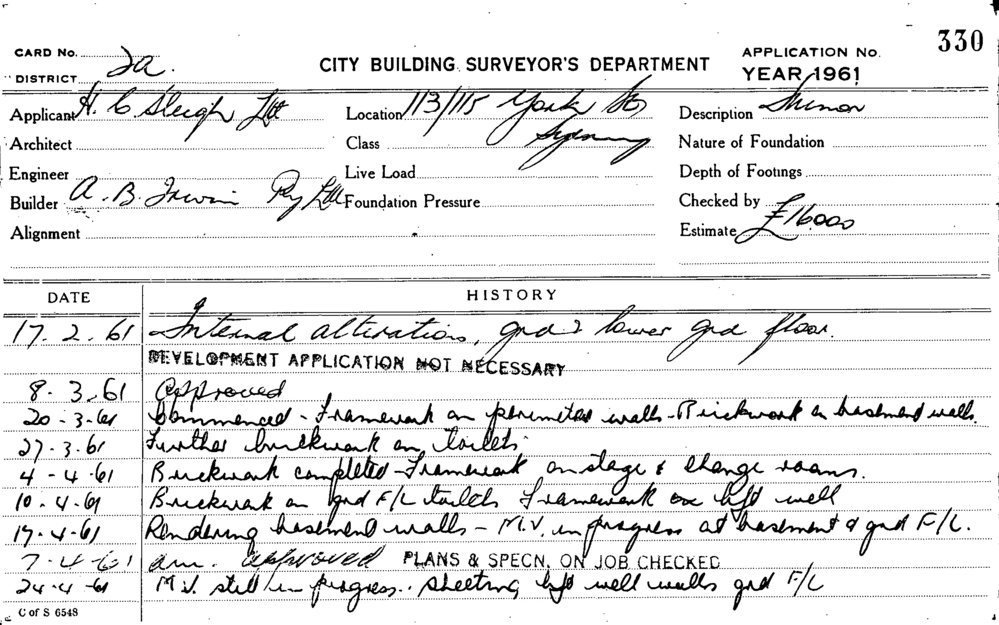 330
CARD No.
DISTRICT 2a.
CITY BUILDING SURVEYOR'S DEPARTMENT
APPLICATION No.
YEAR 1961
Applicant H. C. Sleigh Ltd
Location 113/115 York St, Sydney
Description Minor
Architect
Class
Nature of Foundation
Engineer
Live Load
Depth of Footings
Builder A. B. Irwin Pty Ltd
Foundation Pressure
Checked by
Alignment
Estimate £16000
DATE HISTORY
17. 2. 61 Internal alterations, grd & lower grd floor.
DEVELOPMENT APPLICATION NOT NECESSARY
8. 3. 61 Approved
20 - 3 - 61 Commenced - Framework on perimeter walls - Brickwork on basement walls
27 - 3. 61 Further brickwork on toilets
4 - 4 - 61 Brickwork completed - Framework on stage & change rooms.
10. 4. 61 Brickwork on grd F/L toilets Framework on lift well
17 - 4 - 61 Rendering basement walls - M.V. in progress at basement & grd F/L.
7 - 4 - 61 am. approved PLANS & SPECN. ON JOB CHECKED
24 - 4 - 61 M.V. still in progress.. Sheeting lift well walls grd F/L
C of S 6548